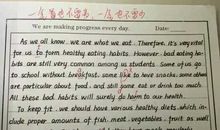 一个首也不要多，一个也不要少
We are making progress every day. Date:
As we all know, we are what we eat. Therefore, it's very vital
for us to form healthy eating habits. However, bad eating ha-
bits are still very common among us students. Some of us go
to school without breakfast, some like to have snacks, some others
are particular about food, and still some eat or drink too much.
All these bad habits will surely do harm to our health.
To keep fit, we should have various healthy diets, which in-
clude proper amounts of fish, meat, vegetables, fruit as well